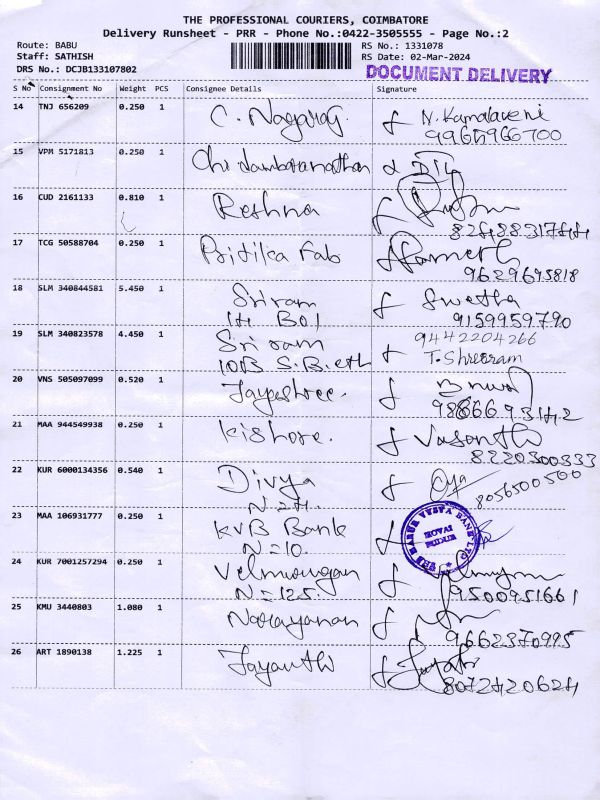 THE PROFESSIONAL COURIERS, COIMBATORE
Delivery Runsheet - PRR - Phone No.:0422-3505555 - Page No.:2
Route: BABU
Staff: SATHISH
DRS No.: DCJB133107802
RS No.: 1331078
RS Date: 02-Mar-2024
DOCUMENT DELIVERY
S No Consignment No Weight PCS Consignee Details Signature
14 TNJ 656209 0.250 1 C. Nagaraj N. Kamalaveni
9965966700
15 VPM 5171813 0.250 1 Chidambaranathan
16 CUD 2161133 0.810 1 Reshna
8248831744
17 TCG 50588704 0.250 1 Pritika Fab
9629695818
18 SLM 340844581 5.450 1 Sriram Swetha
9159959790
19 SLM 340823578 4.450 1 Sriram 9442204266
T. Shreeram
20 VNS 505097099 0.520 1 Jayashree.
21 MAA 944549938 0.250 1 Kishore. Vasanth
8220300333
22 KUR 6000134356 0.540 1 Divya
N=4. 8056500500
23 MAA 106931777 0.250 1 KVB Bank
N=10. THE KARUR VYSYA BANK LTD
24 KUR 7001257294 0.250 1 Velmurugan
N=125. 9500951661
25 KMU 3440803 1.080 1 Narayanan
9662370995
26 ART 1890138 1.225 1 Jayanthi
8072420624